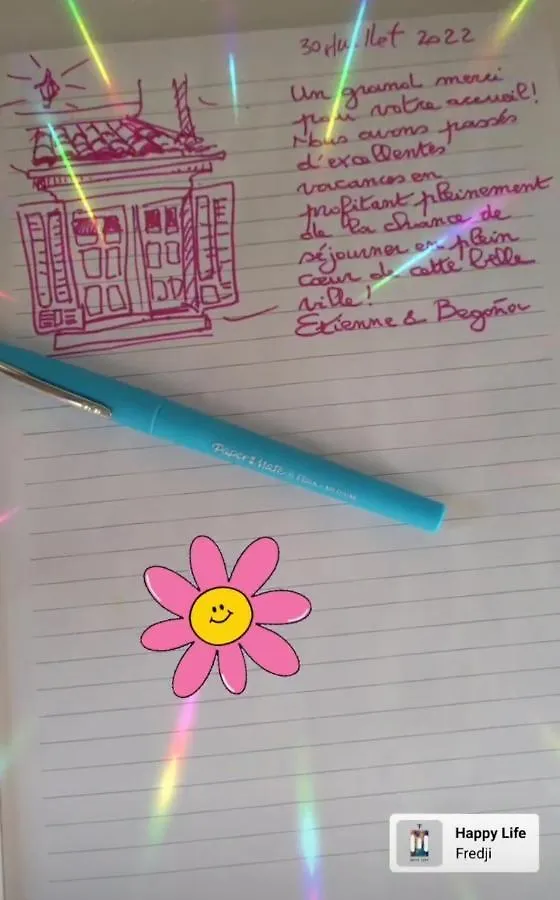 30 Juillet 2022
Un grand merci
pour votre accueil!
Nous avons passés
d'excellentes
vacances en
profitant pleinement
de la chance de
séjourner en plein
cœur de cette belle
ville!
Etienne & Begoña
Paper Mate
Happy Life
Fredji